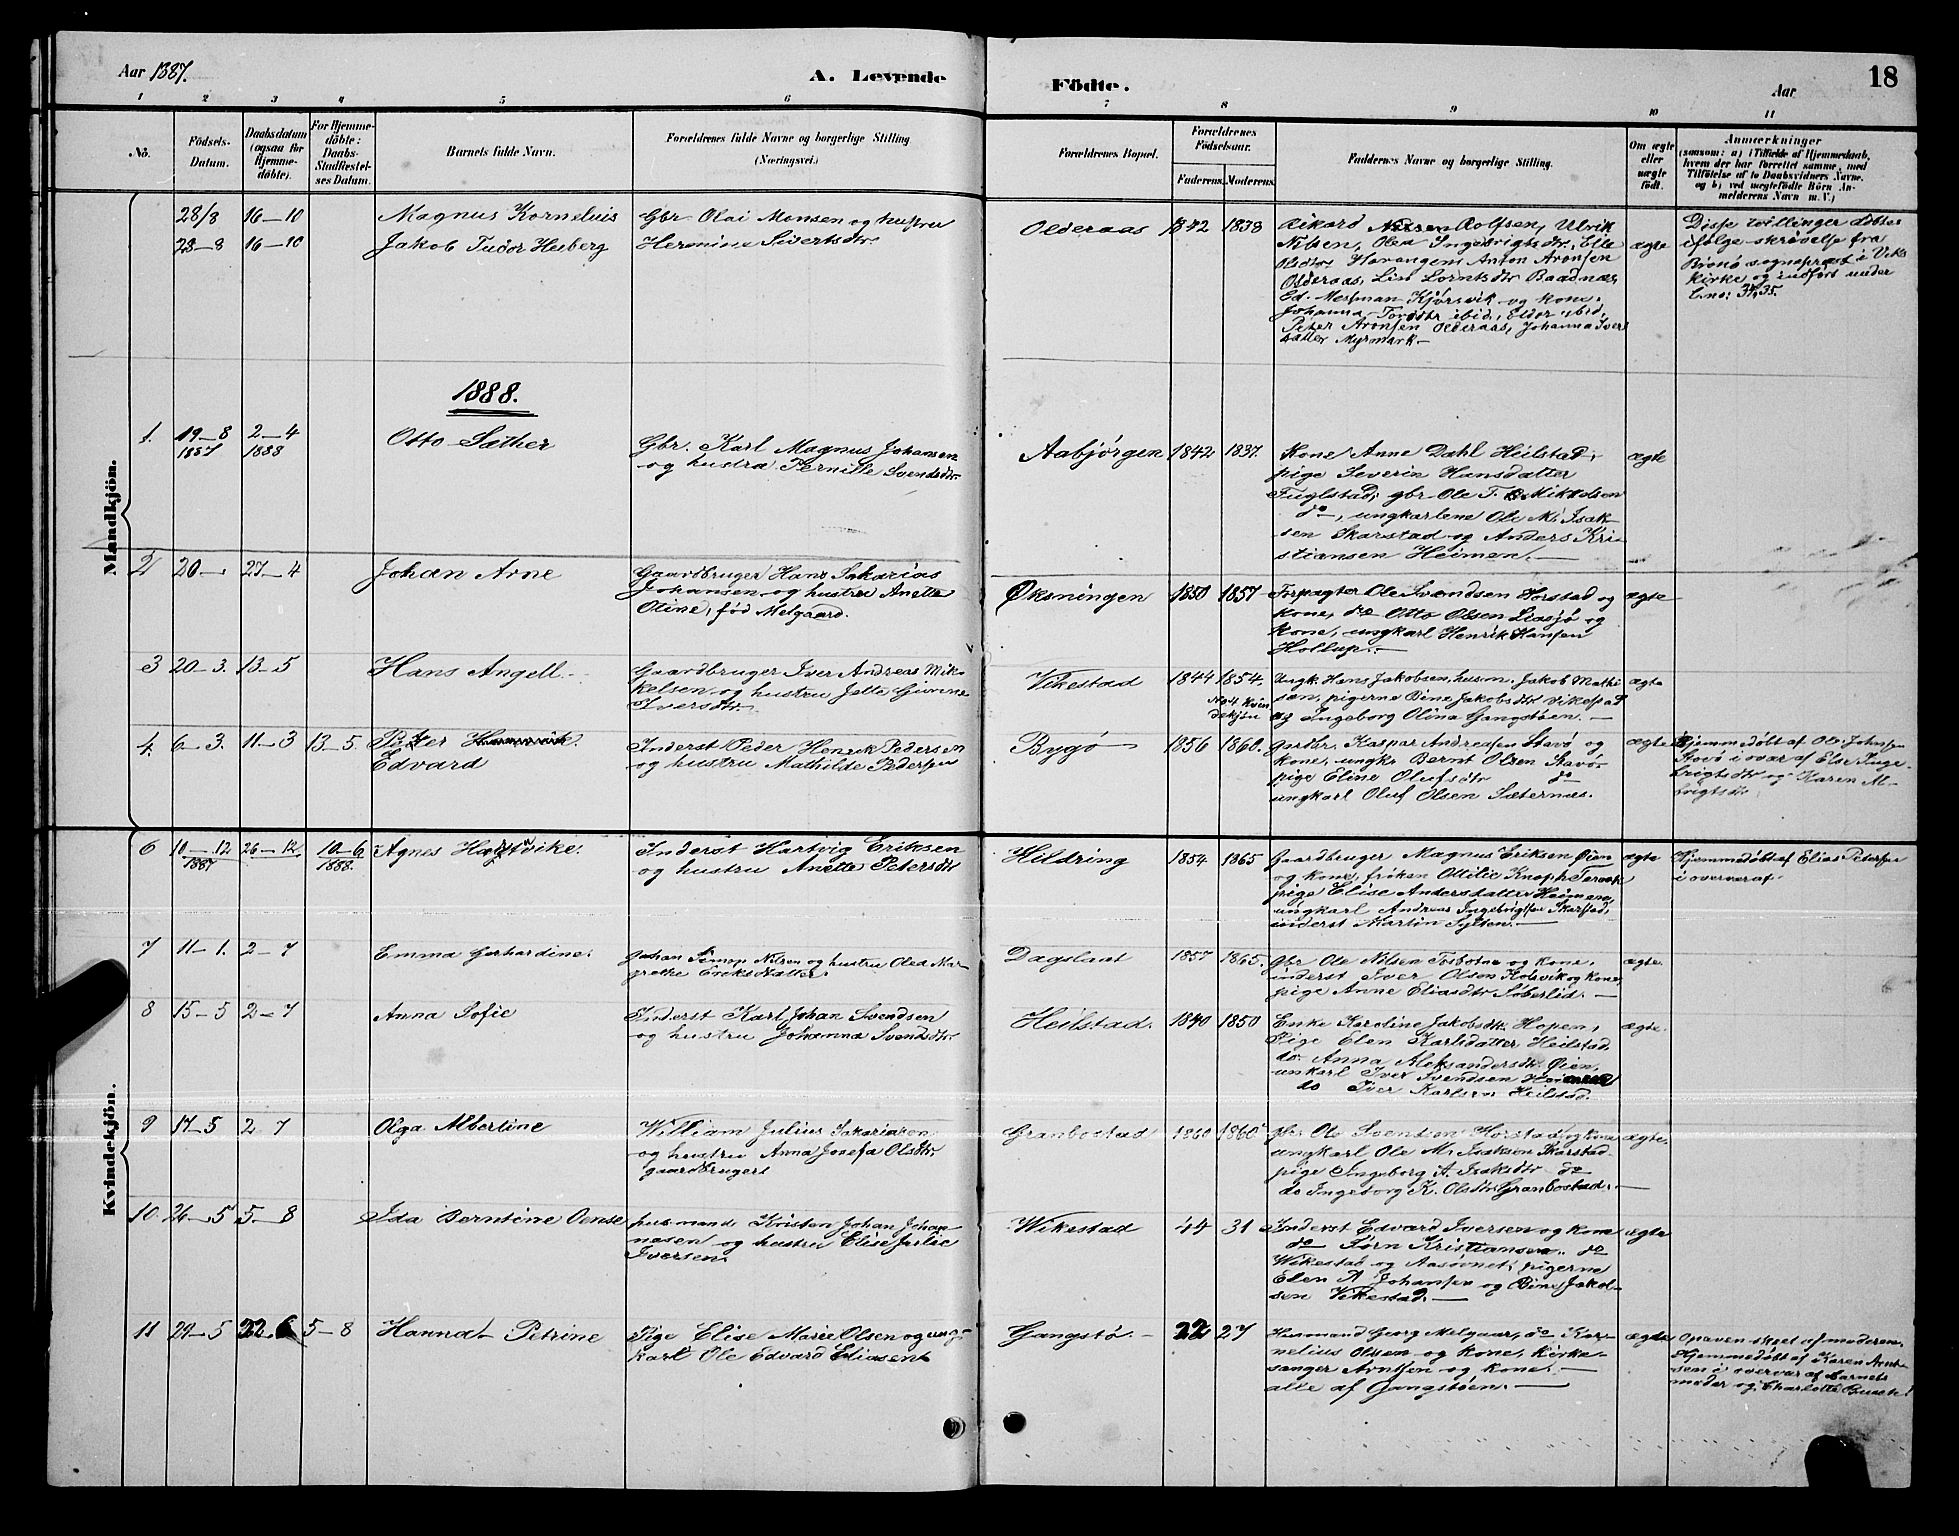 Aar 1887.
A. Levende
Födte.
Aar
18
1 2 3 4 5 6 7 8 9 10 11
No.
Födsels-
Datum.
Daabsdatum
(ogsaa for
Hjemme-
döbte).
For Hjemme-
döbte:
Daabs-
Stadfæstel-
ses Datum.
Barnets fulde Navn.
Forældrenes fulde Navne og borgerlige Stilling
(Næringsvei.)
Forældrenes Bopæl.
Forældrenes
Födselsaar.
Faderens.
Moderens.
Faddernes Navne og borgerlige Stilling.
Om ægte
eller
uægte
født.
Anmærkninger
(saasom: a) i Tilfælde af Hjemmedaab,
hvem der har forrettet samme, med
Tilføielse af to Daabsvidners Navne,
og b) ved uægtefødte Börn An-
melderens Navn m. V.)
Mandkjön.
28/8 16–10 Magnus Korneluis
28–8 16–10 Jakob Tudor Heiberg
Gbr. Olai Monsen og hustru
Hermine Sivertsdtr
Olderaas 1842 1838
Rikard Rolfsen, Ulrik
Nilsen, Olea Ingebrigtsdtr, Elle
Olsdtr Horangen, Anton Aronsen
Olderaas, Lin Lorntsdtr Baadnæs
Ed. Messman Kjörsvik og kone,
Johanna Torsdtr ibid., Eldor ibid,
Peter Aronsen Olderaas, Johanna Ivers
datter Myrmark.–
ægte
Disse tvillinger döbtes
ifölge skrivelse fra
Brönö sogneprest i Viks
kirke og indført under
L.no: 34, 35.
1888.
1. 19–8
1887
2–4
1888
Otto Sæther
Gbr. Karl Magnus Johansen
og hustru Pernille Svendsdtr.
Aabjørgen 1842 1837.
Kone Anne Dahl Heilstad,
pige Severin Hansdatter
Fuglstad, gbr Ole T. Mikkelsen
do, ungkarlene Ole M. Isak-
sen Skarstad og Anders Kri-
stiansen Heimen.–
ægte
2 20– 27–4 Johan Arne
Gaardbruger Hans Sakarias
Johansen og hustru Anette
Oline, fød Melgaard.
Øksningen 1850 1857
Forpagter Ole Svendsen Horstad og
kone, do Otto Olsen Liasjø og
kone, ungkarl Henrik Hansen
Hollup.–
ægte
3 20–3. 13–5 Hans Angell.
Gaardbruger Iver Andreas Mik-
kelsen og hustru Jette Givrine
Iversdtr.
Vikestad 1844 1854.
No 4 Kvin
dekjön
Ungk. Hans Jakobsen, husm. Jakob Mathi-
sen, pigerne Bine Jakobsdtr Vikestad
og Ingeborg Olina Gangstøen.–
ægte
4. 6–3. 11–3 13–5. Peter
Edvard
Inderst Peder Henrik Pedersen
og hustru Mathilde Pedersen
Bygø 1856 1860.
gardbr. Kaspar Andreasen Stavø og
kone, ungk. Bernt Olsen Stavø,
pige Eline Olufsdtr do
ungkarl Oluf Olsen Sæternæs.
ægte
Hjemmedøbt af Ole Johansen
Stovø i ovar af Else Inge-
brigtsdtr og Karen M.
brigtsdtr
Kvindekjön.
6 10–12
1887
26–12 10–6
1888.
Agnes Hartvike.
Inderst Hartvig Eriksen
og hustru Anette Petersdtr
Hildring 1854. 1865
Gaardbruger Magnus Eriksen Øien
og kone, frøken Ottilie Knoph Terraak
pige Elise Andersdatter Heimen,
ungkarl Andreas Ingebrigtsen Skarstad,
inderst Martin Sylten.–
ægte
Hjemmedøbt af Elias Petersen
i overvær af
7 11–1. 2–7 Emma Gerhardine.
Johan Simon Nilsen og hustru Olea Mar-
grethe Eriksdatter
Dagslaat 1857 1865.
Gbr Ole Nilsen Tosbotne og kone,
inderst Iver Olsen Kolsvik og kone,
pige Anne Eliasdtr Söberlid.–
ægte.
8 15–5 2–7 Anna Sofie
Inderst Karl Johan Svendsen
og hustru Johanna Svendsdtr
Heilstad. 1840 1850
Enke Karoline Jakobsdtr. Hopen,
Pige Elen Karlsdatter Heilstad
do. Anna Aleksandersdtr Øien,
unkarl Iver Svendsen
do Iver Karlsen Heilstad.
ægte.
9 17–5 2 7 Olga Albertine
William Julius Sakariasen
og hustru Anna Josefa Olsdtr
gaardbrugert
Granbostad 1860 1860
gbr. Ole Svendsen Horstad og kone
ungkarl Ole M. Isaksen Skarstad,
pige Ingeborg A. Isaksdtr do
do Ingeborg K. Olsdtr Granbostad.–
ægte.
10 26–5 5–8 Ida Berntine Oense
husmand Kristen Johan Johan-
nesen og hustru Elise Julie
Iversen
Wikestad 44 31
Inderst Edvard Iversen og kone
do Jørn Kristiansen. do
Wikestad og Aasøvnet, pigerne
Elen A Johansen og Bine Jakob-
sen Vikestad.–
ægte
11 29–5 22–6 5–8 Hanna Petrine
Pige Elise Marie Olsen og ung-
karl Ole Edvard Eliasen
Gangstø.– 22 27
Husmand Georg Melgaar, do Kor-
nelius Olsen og kone, kirke-
sanger Arntsen og kone.–
alle af Gangstøen.–
ægte
Opgaven skeet af moderen.
Hjemmedøbt af Karen Arnt-
sen i overvær af barnets
moder og Charlotte Busch.